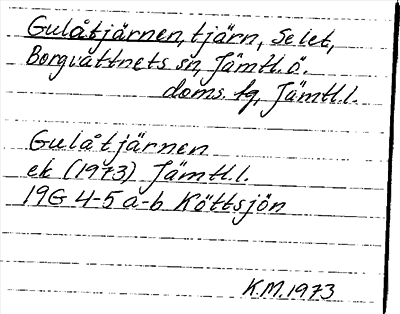 Gulåtjärnen, tjärn, Selet,
Borgvattnets sn, Jämtl.ö.
doms. fg, Jämtl.l.
Gulåtjärnen
ek (1973) Jämtl.l.
19G 4-5 a-b Köttsjön
K.M. 1973